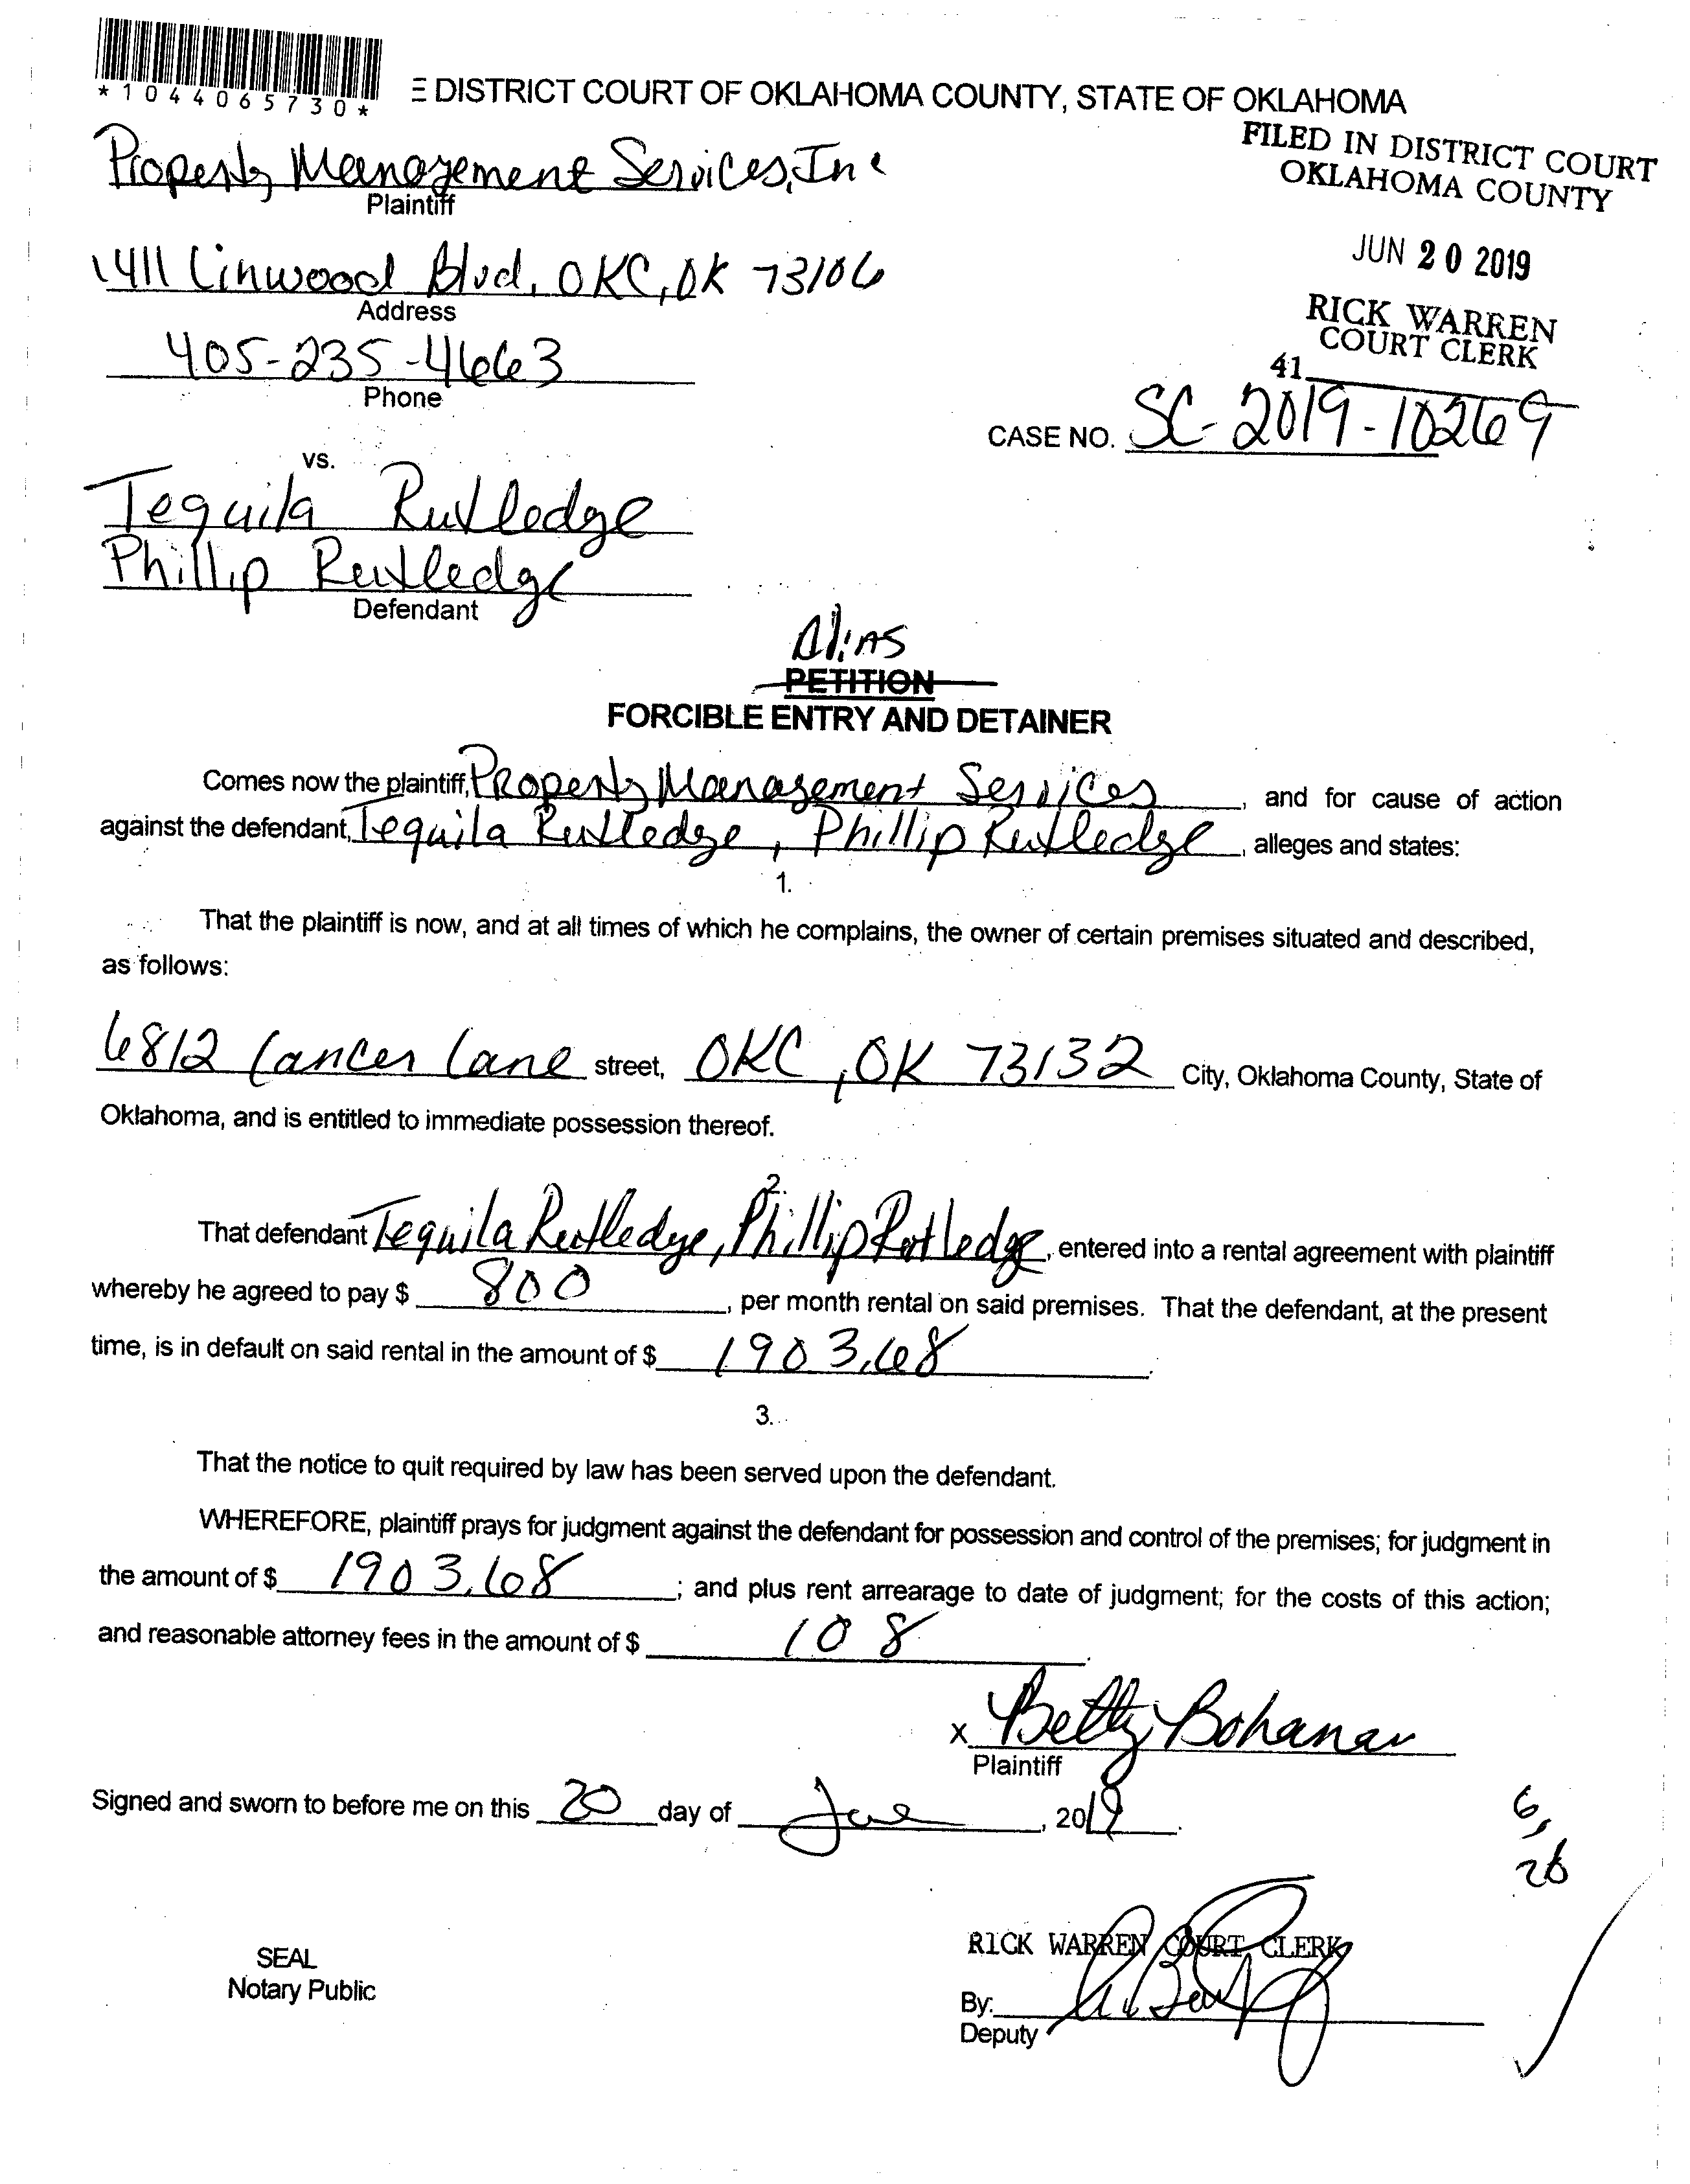 *1044065730*
E DISTRICT COURT OF OKLAHOMA COUNTY, STATE OF OKLAHOMA
FILED IN DISTRICT COURT
OKLAHOMA COUNTY
Property Management Services, Inc
Plaintiff
1411 Linwood Blvd, OKC, OK 73106
Address
JUN 20 2019
RICK WARREN
COURT CLERK
41
405-235-4663
Phone
CASE NO. SC-2019-10269
vs.
Tequila Rutledge
Phillip Rutledge
Defendant
Alias
PETITION
FORCIBLE ENTRY AND DETAINER
Comes now the plaintiff, Property Management Services, and for cause of action
against the defendant, Tequila Rutledge, Phillip Rutledge, alleges and states:
1.
That the plaintiff is now, and at all times of which he complains, the owner of certain premises situated and described,
as follows:
6812 Lancer Lane street, OKC, OK 73132 City, Oklahoma County, State of
Oklahoma, and is entitled to immediate possession thereof.
2.
That defendant Tequila Rutledge, Phillip Rutledge, entered into a rental agreement with plaintiff
whereby he agreed to pay $ 800, per month rental on said premises. That the defendant, at the present
time, is in default on said rental in the amount of $ 1903.68.
3.
That the notice to quit required by law has been served upon the defendant.
WHEREFORE, plaintiff prays for judgment against the defendant for possession and control of the premises; for judgment in
the amount of $ 1903.68; and plus rent arrearage to date of judgment; for the costs of this action;
and reasonable attorney fees in the amount of $ 108.
x Betty Bohanan
Plaintiff
Signed and sworn to before me on this 20 day of June, 2019.
6,
26
RICK WARREN COURT CLERK
SEAL
Notary Public
By:
Deputy